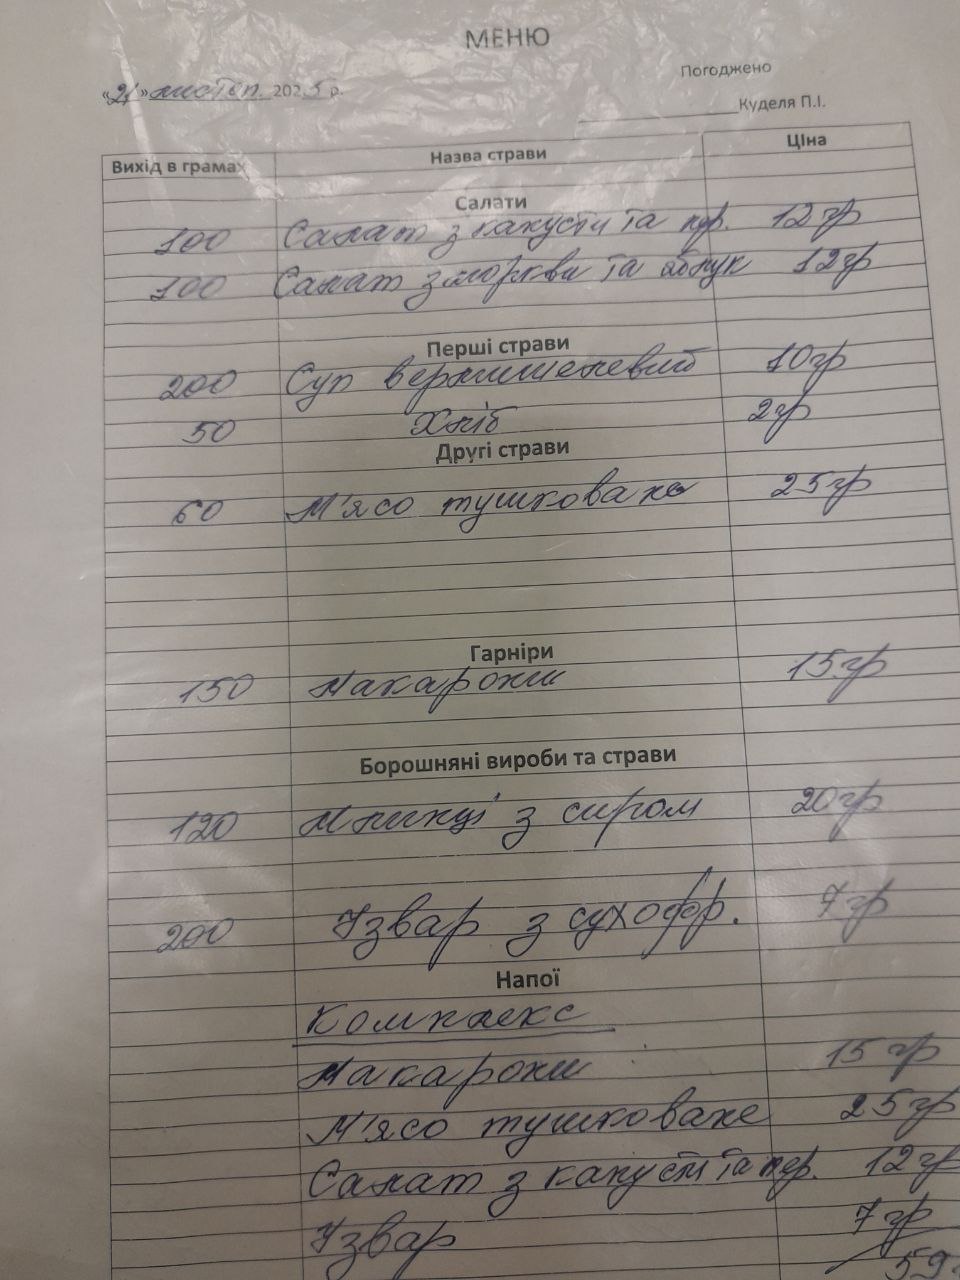 МЕНЮ
Погоджено
«21» листоп. 2025 р.
Куделя П.І.
Вихід в грамах Назва страви Ціна
Салати
100 Салат з капусти та пер. 12 гр
100 Салат з моркви та яблук 12 гр
Перші страви
200 Суп вермішелевий 10 гр
50 Хліб 2 гр
Другі страви
60 М'ясо тушковане 25 гр
Гарніри
150 Макарони 15 гр
Борошняні вироби та страви
120 Млинці з сиром 20 гр
200 Узвар з сухофр. 7 гр
Напої
Комплекс
Макарони 15 гр
М'ясо тушковане 25 гр
Салат з капусти та пер. 12 гр
Узвар 7 гр
59